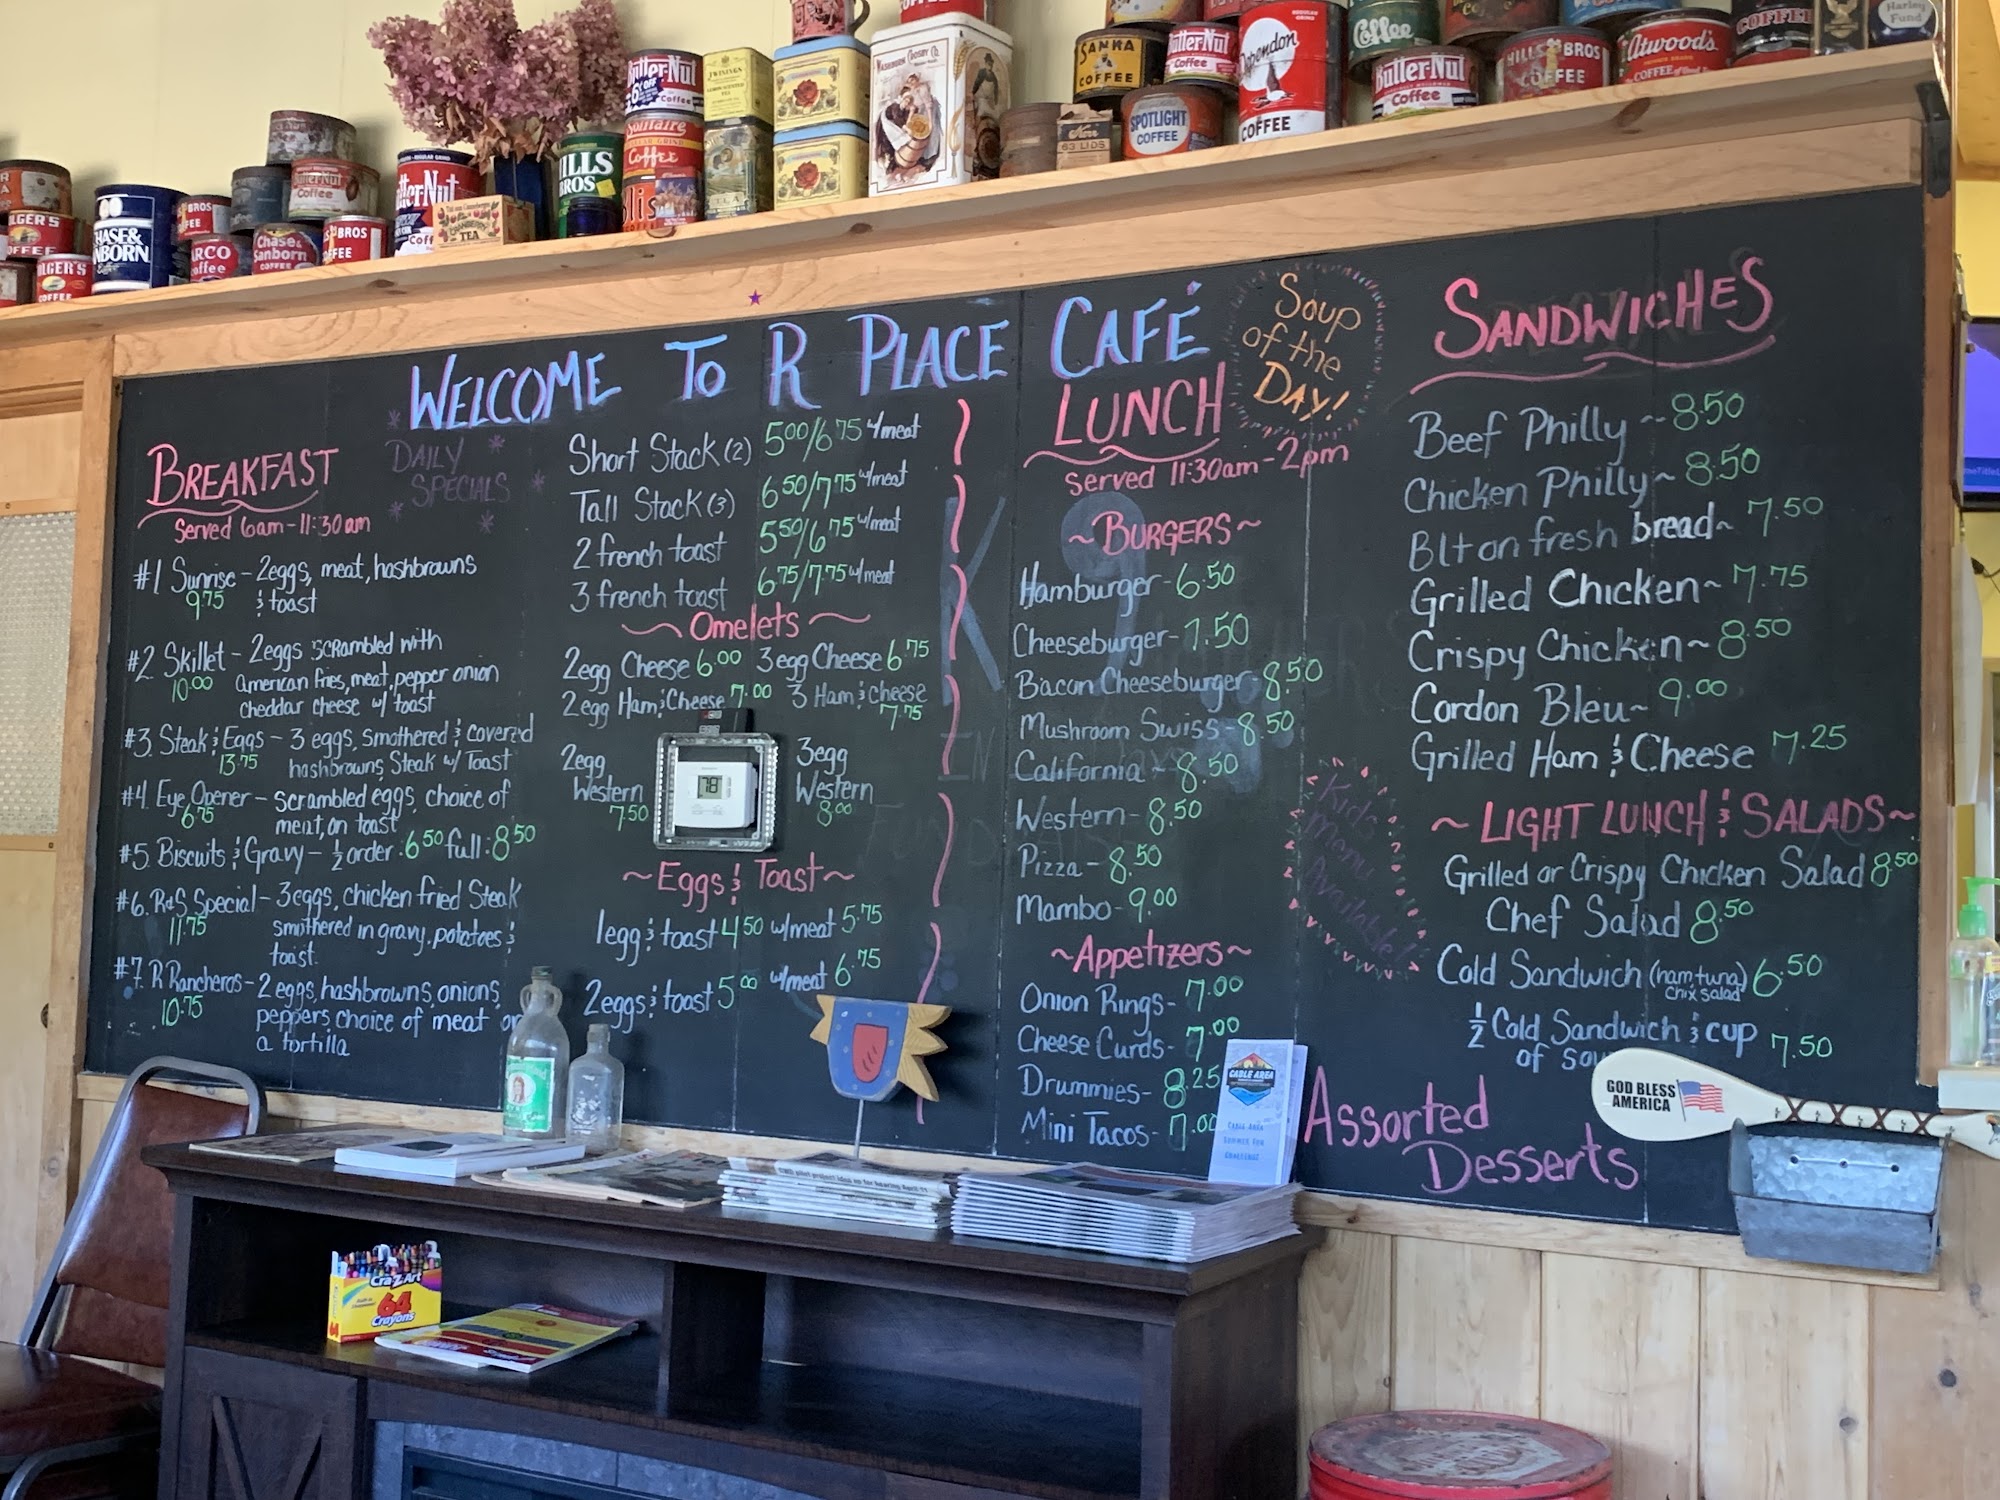 WELCOME TO R PLACE CAFÉ
BREAKFAST
Served 6am-11:30am
DAILY
SPECIALS
#1 Sunrise - 2eggs, meat, hashbrowns
9.75 & toast
#2. Skillet - 2eggs scrambled with
10.00 American fries, meat, pepper onion
cheddar cheese w/ toast
#3. Steak & Eggs - 3 eggs, smothered & covered
13.75 hashbrowns, Steak w/ Toast
#4. Eye Opener - Scrambled eggs, choice of
6.75 meat, on toast
#5. Biscuits & Gravy - 1/2 order: 6.50 full: 8.50
#6. R&S Special - 3eggs, chicken fried Steak
11.75 smothered in gravy. potatoes &
toast.
#7. R Rancheros - 2 eggs, hashbrowns, onions,
10.75 peppers, choice of meat on
a tortilla
Short Stack (2) 5.00/6.75 w/meat
Tall Stack (3) 6.50/7.75 w/meat
2 french toast 5.50/6.75 w/meat
3 french toast 6.75/7.75 w/meat
~Omelets~
2egg Cheese 6.00 3egg Cheese 6.75
2egg Ham & Cheese 7.00 3 Ham & cheese
7.75
2egg
Western
7.50
3egg
Western
8.00
78
~Eggs & Toast~
1egg & toast 4.50 w/meat 5.75
2eggs & toast 5.00 w/meat 6.75
LUNCH
Served 11:30am-2pm
Soup
of the
DAY!
~BURGERS~
Hamburger- 6.50
Cheeseburger- 7.50
Bacon Cheeseburger- 8.50
Mushroom Swiss- 8.50
California - 8.50
Western- 8.50
Pizza- 8.50
Mambo- 9.00
~Appetizers~
Onion Rings- 7.00
Cheese Curds- 7.00
Drummies- 8.25
Mini Tacos- 7.00
Kids
Menu
Available!
SANDWICHES
Beef Philly ~ 8.50
Chicken Philly~ 8.50
Blt on fresh bread~ 7.50
Grilled Chicken~ 7.75
Crispy Chicken~ 8.50
Cordon Bleu~ 9.00
Grilled Ham & Cheese 7.25
~LIGHT LUNCH & SALADS~
Grilled or Crispy Chicken Salad 8.50
Chef Salad 8.50
Cold Sandwich (ham, tuna) 6.50
chix salad
1/2 Cold Sandwich & cup
of sou 7.50
Assorted
Desserts
GOD BLESS
AMERICA
CABLE AREA
CABLE AREA
SUMMER FUN
Cra-Z-Art
64
Crayons
Butter-Nut
Coffee
TWININGS
Solitaire
Coffee
HILLS
BROS
CRANBERRY
TEA
CHASE &
SANBORN
Chase &
Sanborn
COFFEE
FOLGER'S
COFFEE
WASHBURN CROSBY CO.
SANKA
COFFEE
Butter-Nut
Coffee
SPOTLIGHT
COFFEE
Dependon
COFFEE
Coffee
Butter-Nut
Coffee
HILLS BROS
COFFEE
Atwood's
COFFEE
COFFEE
Harley
Fund
63 LIDS